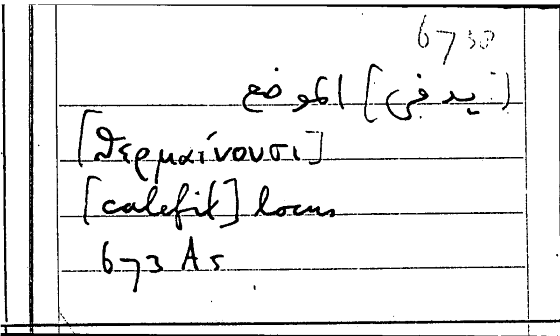 (يدفئ] الموضع
[θερμαίνουσι]
[calefit] locus
673 A5